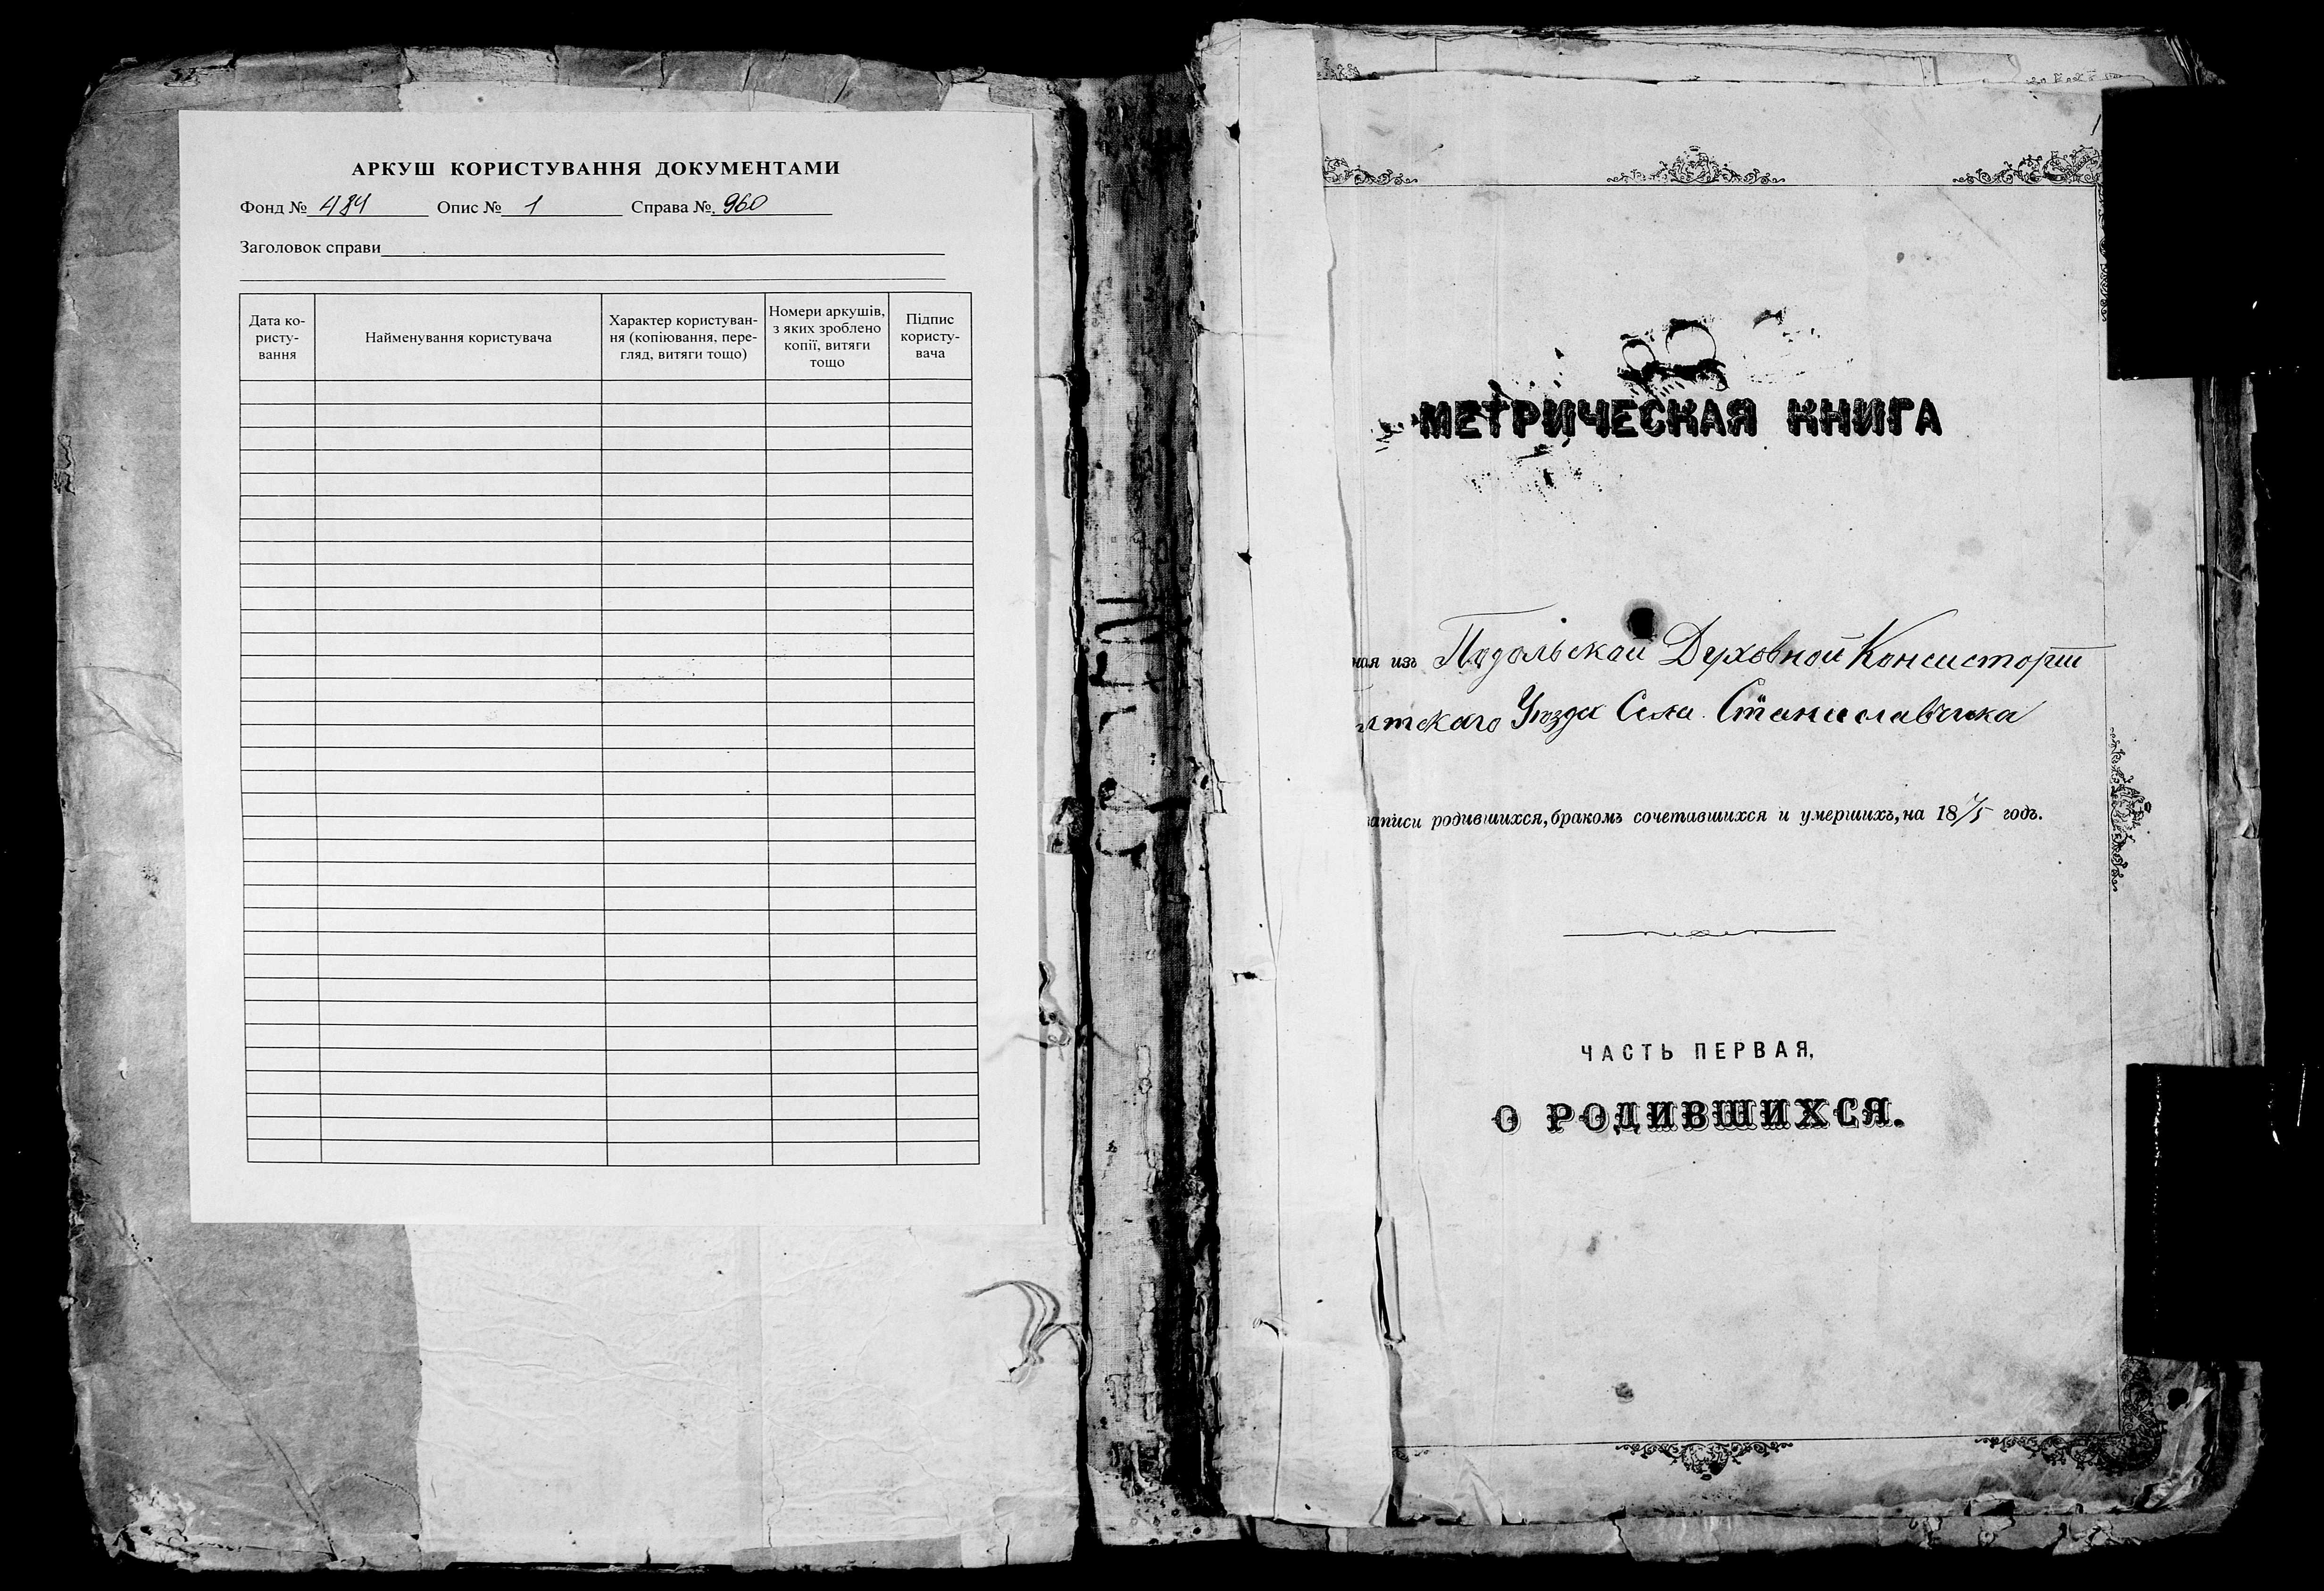 АРКУШ КОРИСТУВАННЯ ДОКУМЕНТАМИ
Фонд № 484 Опис № 1 Справа № 960
Заголовок справи
Дата ко-
ристу-
вання
Найменування користувача
Характер користуван-
ня (копіювання, пере-
гляд, витяги тощо)
Номери аркушів,
з яких зроблено
копії, витяги
тощо
Підпис
користу-
вача
1
МЕТРИЧЕСКАЯ КНИГА
ная изъ Подольской Духовной Консисторіи
тскаго Уѣзда Села Станиславчика
записи родившихся, бракомъ сочетавшихся и умершихъ, на 1875 годъ.
ЧАСТЬ ПЕРВАЯ,
О РОДИВШИХСЯ.